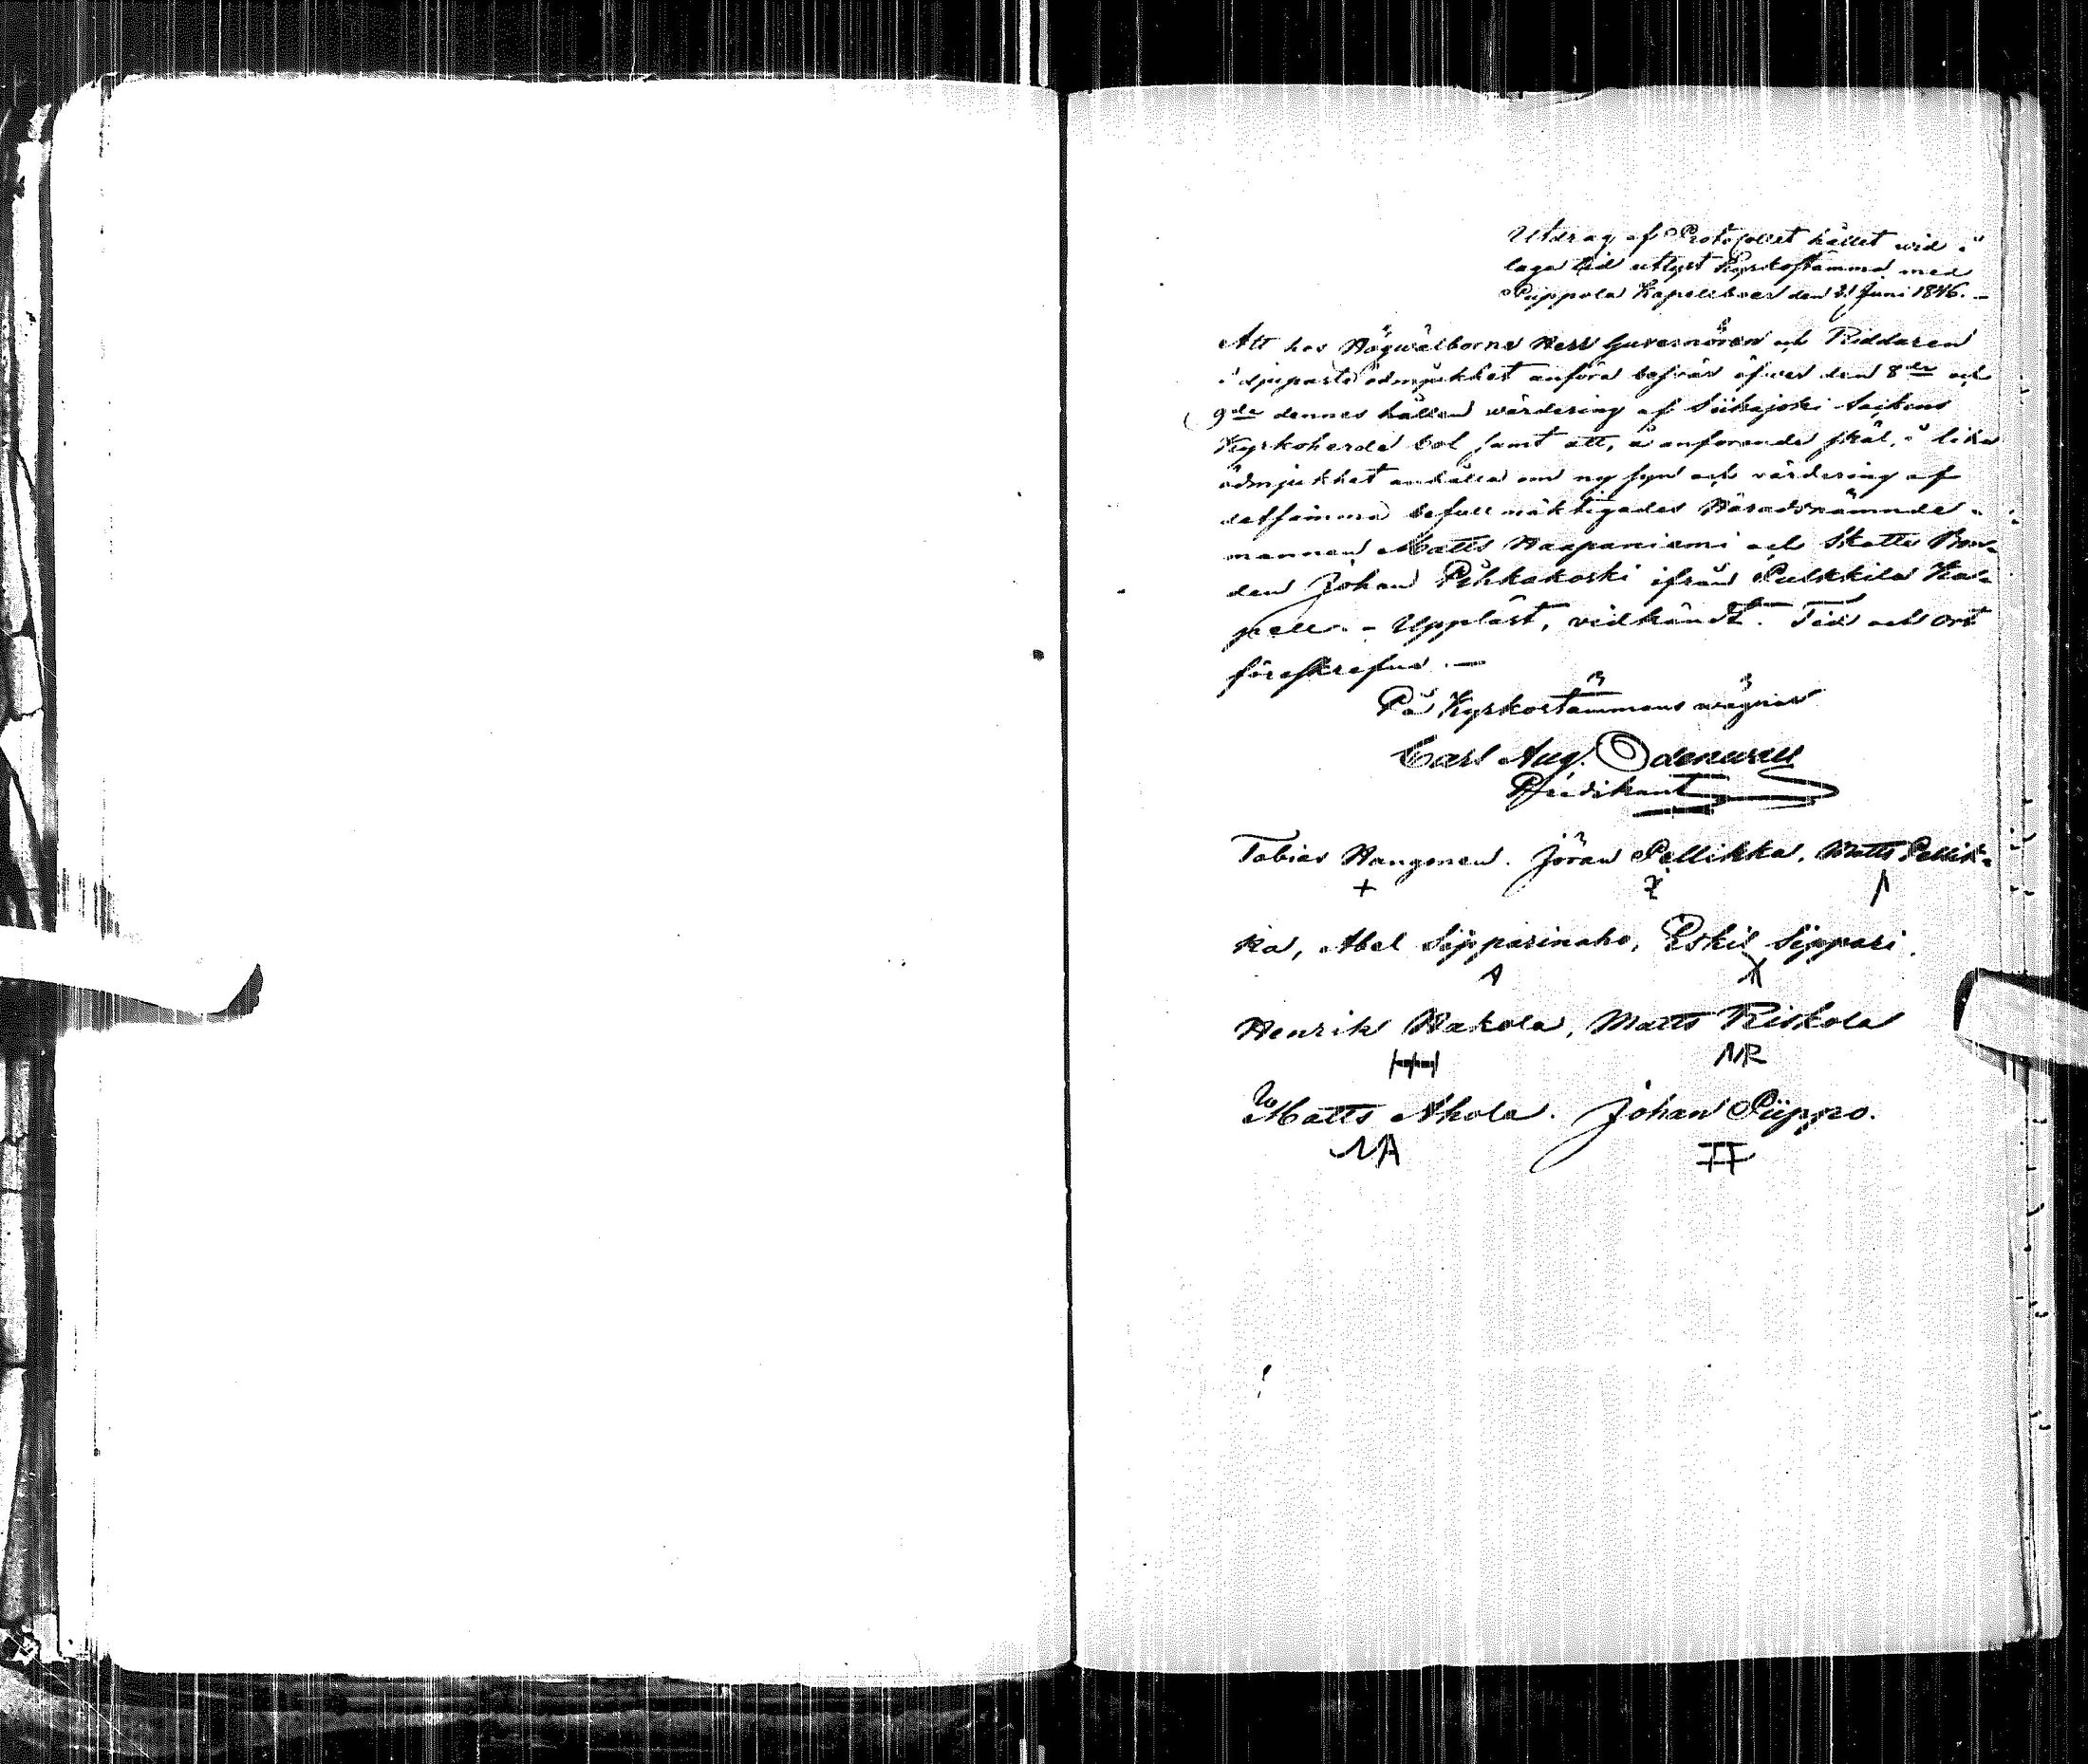 Utdrag af Protocollet hållet wid i
laga tid utlyst Kyrkostämma med
Piippola Kapellboer den 21 Juni 1846. -
Att hos Högwälborne Herr Guvernören och Riddaren
i djupaste ödmjukhet anföra besvär öfver den 8de och
9de dennes hållen wärdering af Siikajoki Sockens
Kyrkoherde bol samt att, å anförande skäl, i lika
ödmjukhet anhålla om ny syn och värdering af
detsamma befullmäktigades Häradsnämnde-
mannen Matts Haapaniemi och Skatte Bon-
den Johan Pihkakoski ifrån Pulkkila Ka-
pell. - Uppläst, vidkändt. Tid och ort
föreskrefne. -
På Kyrkostämmans wägnar
Carl Aug. Odenwall
Predikant
Tobias Hangonen. Jöran Pellikka. Matts Pellik-
+
ka, Abel Sipparinaho, Eskil Sippari.
A
Henrik Hakola, Matts Riskola
HH MR
Matts Ahola. Johan Piippo.
MA II